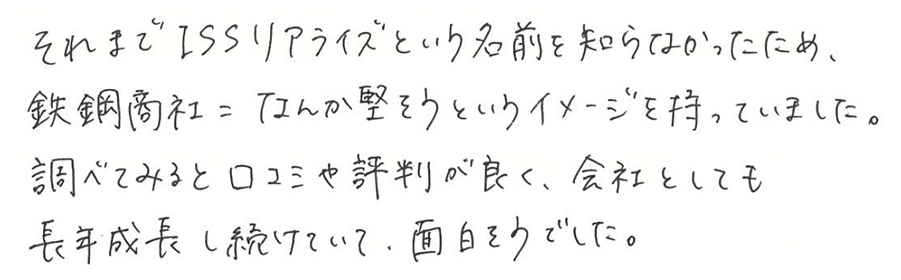 それまでISSリアライズという名前を知らなかったため、
鉄鋼商社=なんか堅そうというイメージを持っていました。
調べてみると口コミや評判が良く、会社としても
長年成長し続けていて、面白そうでした。